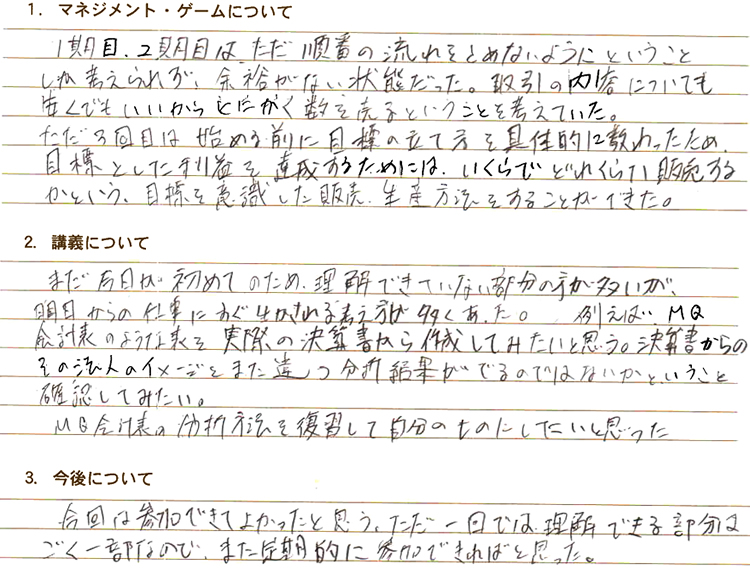 1. マネジメント・ゲームについて
1期目、2期目は ただ 順番の流れをとめないように ということ
しか考えられず、余裕がない状態だった。取引の内容についても
安くでもいいからとにかく数を売るということを考えていた。
ただ3回目は 始める前に目標の立て方を具体的に教わったため、
目標とした利益を達成するためには、いくらで どれくらい販売する
かという、目標を意識した販売、生産方法をすることができた。
2. 講義について
まだ今日が初めてのため、理解できていない部分の方が多いが、
明日からの仕事にすぐ生かされる考え方が多くあった。 例えば、MQ
会計表のような表を実際の決算書から作成してみたいと思う。決算書からの
その法人のイメージとまた違う分析結果がでるのではないかということ
確認してみたい。
MQ会計表の分析方法を復習して自分のものにしたいと思った
3. 今後について
今回は参加できてよかったと思う。ただ一回では、理解できる部分は
ごく一部なので、また定期的に参加できればと思った。